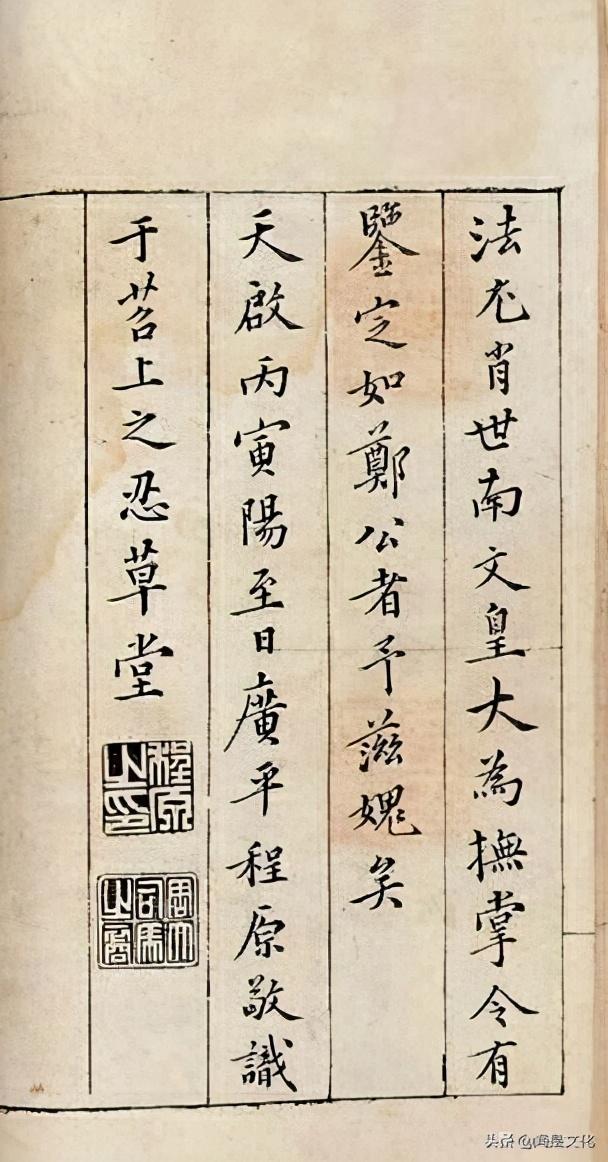 法尤肖世南文皇大為撫掌令有
鑒定如鄭公者予滋媿矣
天啟丙寅陽至日廣平程原敬識
于苕上之忍草堂
程原之印
周大司馬之裔